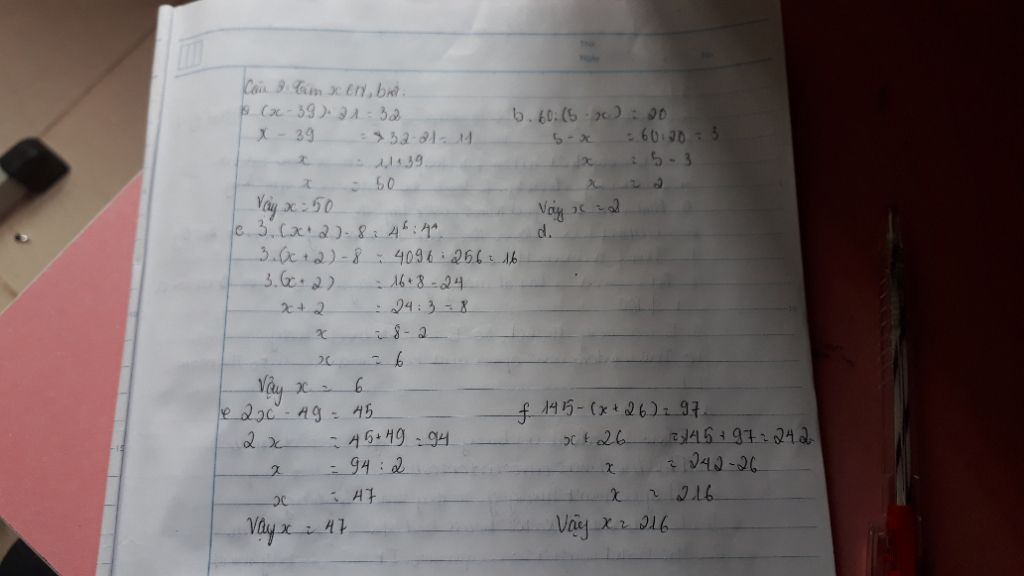 Câu 2: Tìm x ∈ N, biết:
a. (x - 39) + 21 = 32
x - 39 = 32 - 21 = 11
x = 11 + 39
x = 50
Vậy x = 50
b. 60 : (5 - x) = 20
5 - x = 60 : 20 = 3
x = 5 - 3
x = 2
Vậy x = 2
c. 3.(x + 2) - 8 = 4⁶ : 4⁴
3.(x + 2) - 8 = 4096 : 256 = 16
3.(x + 2) = 16 + 8 = 24
x + 2 = 24 : 3 = 8
x = 8 - 2
x = 6
Vậy x = 6
d.
e 2x - 49 = 45
2x = 45 + 49 = 94
x = 94 : 2
x = 47
Vậy x = 47
f 145 - (x + 26) = 97
x + 26 = 145 + 97 = 242
x = 242 - 26
x = 216
Vậy x = 216